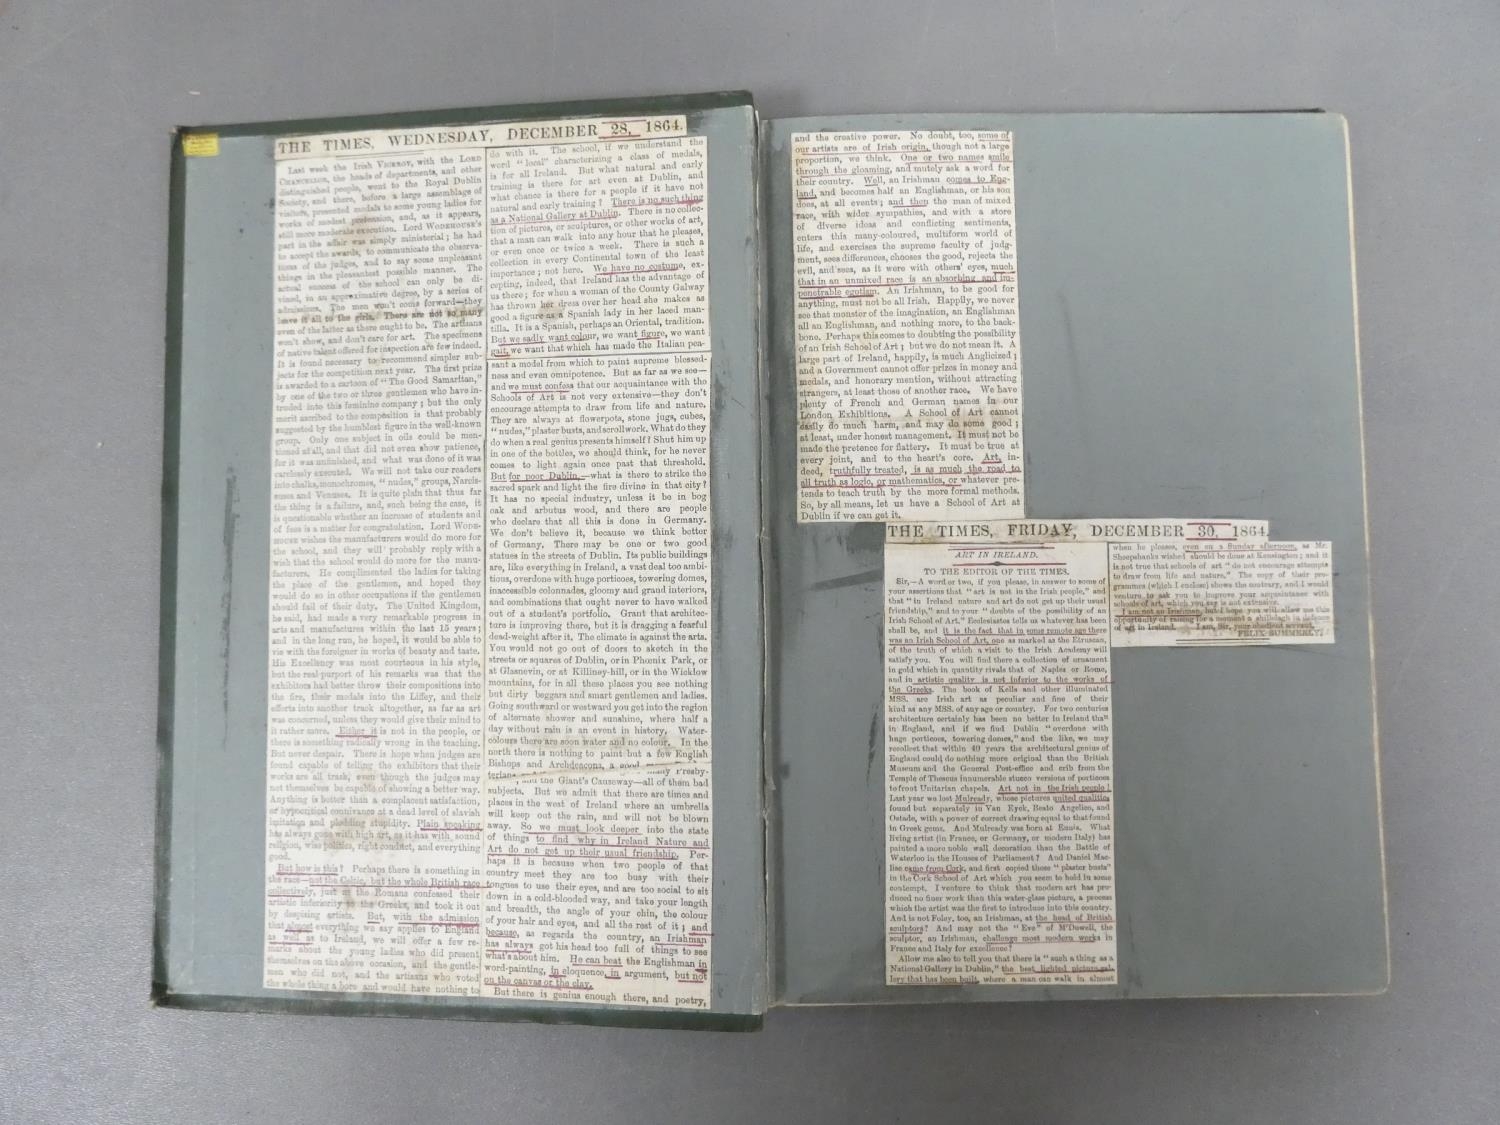 THE TIMES, WEDNESDAY, DECEMBER 28, 1864.
Last week the Irish VICEROY, with the LORD
CHANCELLOR, the heads of departments, and other
distinguished people, went to the Royal Dublin
Society, and there, before a large assemblage of
visitors, presented medals to some young ladies for
works of modest pretension, and, as it appears,
still more moderate execution. Lord WODEHOUSE'S
part in the affair was simply ministerial; he had
to accept the awards, to communicate the observa-
tions of the judges, and to say some unpleasant
things in the pleasantest possible manner. The
actual success of the school can only be di-
vined, in an approximative degree, by a series of
admissions. The men won't come forward—they
leave it all to the girls. There are not so many
even of the latter as there ought to be. The artisans
won't show, and don't care for art. The specimens
of native talent offered for inspection are few indeed.
It is found necessary to recommend simpler sub-
jects for the competition next year. The first prize
is awarded to a cartoon of "The Good Samaritan,"
by one of the two or three gentlemen who have in-
truded into this feminine company; but the only
merit ascribed to the composition is that probably
suggested by the humblest figure in the well-known
group. Only one subject in oils could be men-
tioned at all, and that did not even show patience,
for it was unfinished, and what was done of it was
carelessly executed. We will not take our readers
into chalks, monochromes, "nudes," groups, Narcis-
suses and Venuses. It is quite plain that thus far
the thing is a failure, and, such being the case, it
is questionable whether an increase of students and
of fees is a matter for congratulation. Lord WODE-
HOUSE wishes the manufacturers would do more for
the school, and they will probably reply with a
wish that the school would do more for the manu-
facturers. He complimented the ladies for taking
the place of the gentlemen, and hoped they
would do so in other occupations if the gentlemen
should fail of their duty. The United Kingdom,
he said, had made a very remarkable progress in
arts and manufactures within the last 15 years;
and in the long run, he hoped, it would be able to
vie with the foreigner in works of beauty and taste.
His Excellency was most courteous in his style,
but the real purport of his remarks was that the
exhibitors had better throw their compositions into
the fire, their medals into the Liffey, and their
efforts into another track altogether, as far as art
was concerned, unless they would give their mind to
it rather more. Either it is not in the people, or
there is something radically wrong in the teaching.
But never despair. There is hope when judges are
found capable of telling the exhibitors that their
works are all trash, even though the judges may
not themselves be capable of showing a better way.
Anything is better than a complacent satisfaction,
or hypocritical connivance at a dead level of slavish
imitation and plodding stupidity. Plain speaking
has always gone with high art, as it has with sound
religion, wise politics, right conduct, and everything
good.
But how is this? Perhaps there is something in
the race—not the Celtic, but the whole British race
collectively, just as the Romans confessed their
artistic inferiority to the Greeks, and took it out
by despising artists. But, with the admission
that almost everything we say applies to England
as well as to Ireland, we will offer a few re-
marks about the young ladies who did present
themselves on the above occasion, and the gentle-
men who did not, and the artisans who voted
the whole thing a bore and would have nothing to
do with it. The school, if we understand the
word "local" characterizing a class of medals,
is for all Ireland. But what natural and early
training is there for art even at Dublin, and
what chance is there for a people if it have not
natural and early training? There is no such thing
as a National Gallery at Dublin. There is no collec-
tion of pictures, or sculptures, or other works of art,
that a man can walk into any hour that he pleases,
or even once or twice a week. There is such a
collection in every Continental town of the least
importance; not here. We have no costume, ex-
cepting, indeed, that Ireland has the advantage of
us there; for when a woman of the County Galway
has thrown her dress over her head she makes as
good a figure as a Spanish lady in her laced man-
tilla. It is a Spanish, perhaps an Oriental, tradition.
But we sadly want colour, we want figure, we want
gait, we want that which has made the Italian pea-
sant a model from which to paint supreme blessed-
ness and even omnipotence. But as far as we see—
and we must confess that our acquaintance with the
Schools of Art is not very extensive—they don't
encourage attempts to draw from life and nature.
They are always at flowerpots, stone jugs, cubes,
"nudes," plaster busts, and scrollwork. What do they
do when a real genius presents himself? Shut him up
in one of the bottles, we should think, for he never
comes to light again once past that threshold.
But for poor Dublin,—what is there to strike the
sacred spark and light the fire divine in that city?
It has no special industry, unless it be in bog
oak and arbutus wood, and there are people
who declare that all this is done in Germany.
We don't believe it, because we think better
of Germany. There may be one or two good
statues in the streets of Dublin. Its public buildings
are, like everything in Ireland, a vast deal too ambi-
tious, overdone with huge porticoes, towering domes,
inaccessible colonnades, gloomy and grand interiors,
and combinations that ought never to have walked
out of a student's portfolio. Grant that architec-
ture is improving there, but it is dragging a fearful
dead-weight after it. The climate is against the arts.
You would not go out of doors to sketch in the
streets or squares of Dublin, or in Phœnix Park, or
at Glasnevin, or at Killiney-hill, or in the Wicklow
mountains, for in all these places you see nothing
but dirty beggars and smart gentlemen and ladies.
Going southward or westward you get into the region
of alternate shower and sunshine, where half a
day without rain is an event in history. Water-
colours there are soon water and no colour. In the
north there is nothing to paint but a few English
Bishops and Archdeacons, a good many Presby-
terians and the Giant's Causeway—all of them bad
subjects. But we admit that there are times and
places in the west of Ireland where an umbrella
will keep out the rain, and will not be blown
away. So we must look deeper into the state
of things to find why in Ireland Nature and
Art do not get up their usual friendship. Per-
haps it is because when two people of that
country meet they are too busy with their
tongues to use their eyes, and are too social to sit
down in a cold-blooded way, and take your length
and breadth, the angle of your chin, the colour
of your hair and eyes, and all the rest of it; and
because, as regards the country, an Irishman
has always got his head too full of things to see
what's about him. He can beat the Englishman in
word-painting, in eloquence, in argument, but not
on the canvas or the clay.
But there is genius enough there, and poetry,
and the creative power. No doubt, too, some of
our artists are of Irish origin, though not a large
proportion, we think. One or two names smile
through the gloaming, and mutely ask a word for
their country. Well, an Irishman comes to Eng-
land, and becomes half an Englishman, or his son
does, at all events; and then the man of mixed
race, with wider sympathies, and with a store
of diverse ideas and conflicting sentiments,
enters this many-coloured, multiform world of
life, and exercises the supreme faculty of judg-
ment, sees differences, chooses the good, rejects the
evil, and sees, as it were with others' eyes, much
that in an unmixed race is an absorbing and im-
penetrable egotism. An Irishman, to be good for
anything, must not be all Irish. Happily, we never
see that monster of the imagination, an Englishman
all an Englishman, and nothing more, to the back-
bone. Perhaps this comes to doubting the possibility
of an Irish School of Art; but we do not mean it. A
large part of Ireland, happily, is much Anglicized;
and a Government cannot offer prizes in money and
medals, and honorary mention, without attracting
strangers, at least those of another race. We have
plenty of French and German names in our
London Exhibitions. A School of Art cannot
easily do much harm, and may do some good;
at least, under honest management. It must not be
made the pretence for flattery. It must be true at
every joint, and to the heart's core. Art, in-
deed, truthfully treated, is as much the road to
all truth as logic, or mathematics, or whatever pre-
tends to teach truth by the more formal methods.
So, by all means, let us have a School of Art at
Dublin if we can get it.
THE TIMES, FRIDAY, DECEMBER 30, 1864.
ART IN IRELAND.
TO THE EDITOR OF THE TIMES.
Sir,—A word or two, if you please, in answer to some of
your assertions that "art is not in the Irish people," and
that "in Ireland nature and art do not get up their usual
friendship," and to your "doubts of the possibility of an
Irish School of Art." Ecclesiastes tells us whatever has been
shall be, and it is the fact that in some remote age there
was an Irish School of Art, one as marked as the Etruscan,
of the truth of which a visit to the Irish Academy will
satisfy you. You will find there a collection of ornament
in gold which in quantity rivals that of Naples or Rome,
and in artistic quality is not inferior to the works of
the Greeks. The book of Kells and other illuminated
MSS. are Irish art as peculiar and fine of their
kind as any MSS. of any age or country. For two centuries
architecture certainly has been no better in Ireland than
in England, and if we find Dublin "overdone with
huge porticoes, towering domes," and the like, we may
recollect that within 40 years the architectural genius of
England could do nothing more original than the British
Museum and the General Post-office and crib from the
Temple of Theseus innumerable stucco versions of porticoes
to front Unitarian chapels. Art not in the Irish people!
Last year we lost Mulready, whose pictures united qualities
found but separately in Van Eyck, Beato Angelico, and
Ostade, with a power of correct drawing equal to that found
in Greek gems. And Mulready was born at Ennis. What
living artist (in France, or Germany, or modern Italy) has
painted a more noble wall decoration than the Battle of
Waterloo in the Houses of Parliament? And Daniel Mac-
lise came from Cork, and first copied those "plaster busts"
in the Cork School of Art which you seem to hold in some
contempt. I venture to think that modern art has pro-
duced no finer work than this water-glass picture, a process
which the artist was the first to introduce into this country.
And is not Foley, too, an Irishman, at the head of British
sculptors? And may not the "Eve" of M'Dowell, the
sculptor, an Irishman, challenge most modern works in
France and Italy for excellence?
Allow me also to tell you that there is "such a thing as a
National Gallery in Dublin," the best lighted picture gal-
lery that has been built, where a man can walk in almost
when he pleases, even on a Sunday afternoon, as Mr.
Sheepshanks wished should be done at Kensington; and it
is not true that schools of art "do not encourage attempts
to draw from life and nature." The copy of their pro-
grammes (which I enclose) shows the contrary, and I would
venture to ask you to improve your acquaintance with
schools of art, which you say is not extensive.
I am not an Irishman, but I hope you will allow me this
opportunity of raising for a moment a shillelagh in defence
of art in Ireland. I am, Sir, your obedient servant,
FELIX SUMMERLY.